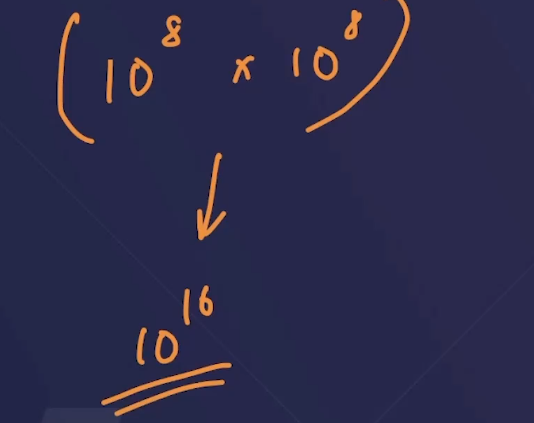 (10⁸ × 10⁸)
10¹⁶